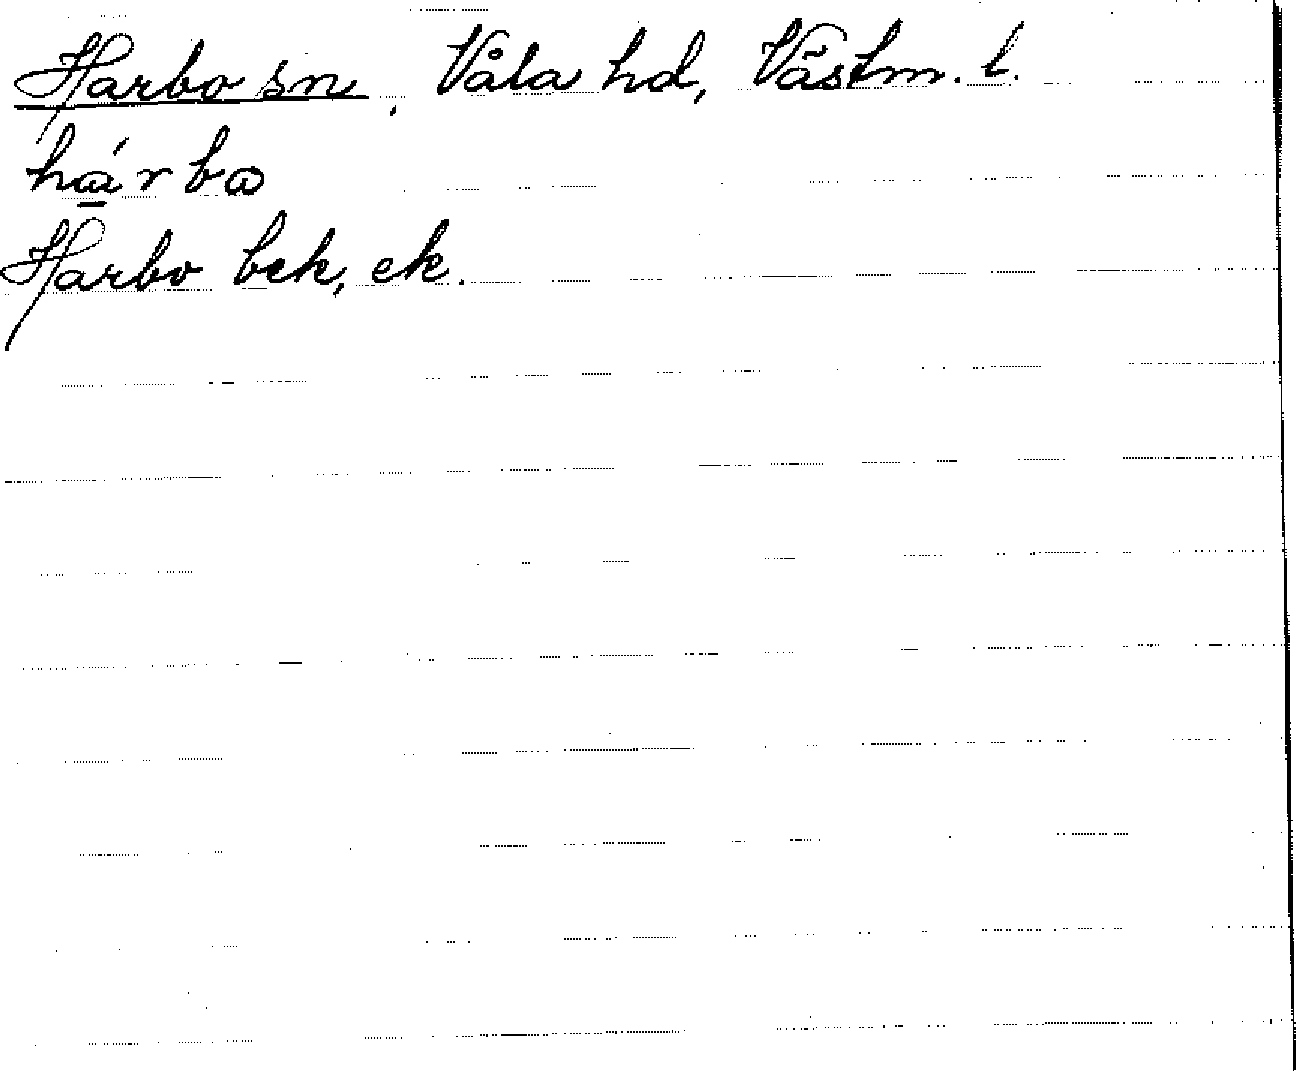 Harbo sn, Våla hd, Västm. l.
hárbo
Harbo bek, ek.